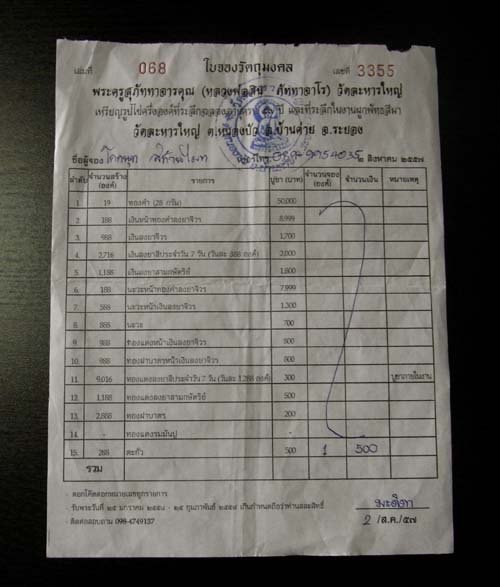 เล่มที่ 068 ใบจองวัตถุมงคล เลขที่ 3355
พระครูสุภัททาจารคุณ (หลวงพ่อสิน ภัททาจาโร) วัดละหารใหญ่
เหรียญรูปไข่ครึ่งองค์ที่ระลึกฉลองอายุครบ ปี และที่ระลึกในงานผูกพัทธสีมา
วัดละหารใหญ่ ต.หนองบัว อ.บ้านค่าย จ.ระยอง
ชื่อผู้จอง โทร. ๒ สิงหาคม ๒๕๕๗
ลำดับ จำนวนสร้าง (องค์) รายการ บูชา (บาท) จำนวนจอง (องค์) จำนวนเงิน หมายเหตุ
1 19 ทองคำ (28 กรัม) 50,000
2. 188 เงินหน้าทองคำลงยาจีวร 8,999
3. 988 เงินลงยาจีวร 1,700
4. 2,716 เงินลงยาสีประจำวัน 7 วัน (วันละ 388 องค์) 2,000
5. 1,188 เงินลงยาสามกษัตริย์ 1,800
6. 188 นะวะหน้าทองคำลงยาจีวร 7,999
7. 588 นะวะหน้าเงินลงยาจีวร 1,300
8. 888 นะวะ 700
9. 988 ทองแดงหน้าเงินลงยาจีวร 800
10. 988 ทองฝาบาตรหน้าเงินลงยาจีวร 800
11. 9,016 ทองแดงลงยาสีประจำวัน 7 วัน (วันละ 1,288 องค์) 300 บูชาภายในงาน
12. 1,188 ทองแดงลงยาสามกษัตริย์ 500
13. 2,888 ทองฝาบาตร 200
14. - ทองแดงรมมันปู -
15. 288 ตะกั่ว 500 1 500
รวม
- ตอกโค๊ตตอกหมายเลขทุกรายการ
รับพระวันที่ ๒๕ มกราคม ๒๕๕๘ - ๒๕ กุมภาพันธ์ ๒๕๕๘ เกินกำหนดถือว่าท่านสละสิทธิ์
- ติดต่อสอบถาม 098-4749137
2 /ส.ค./๕๗